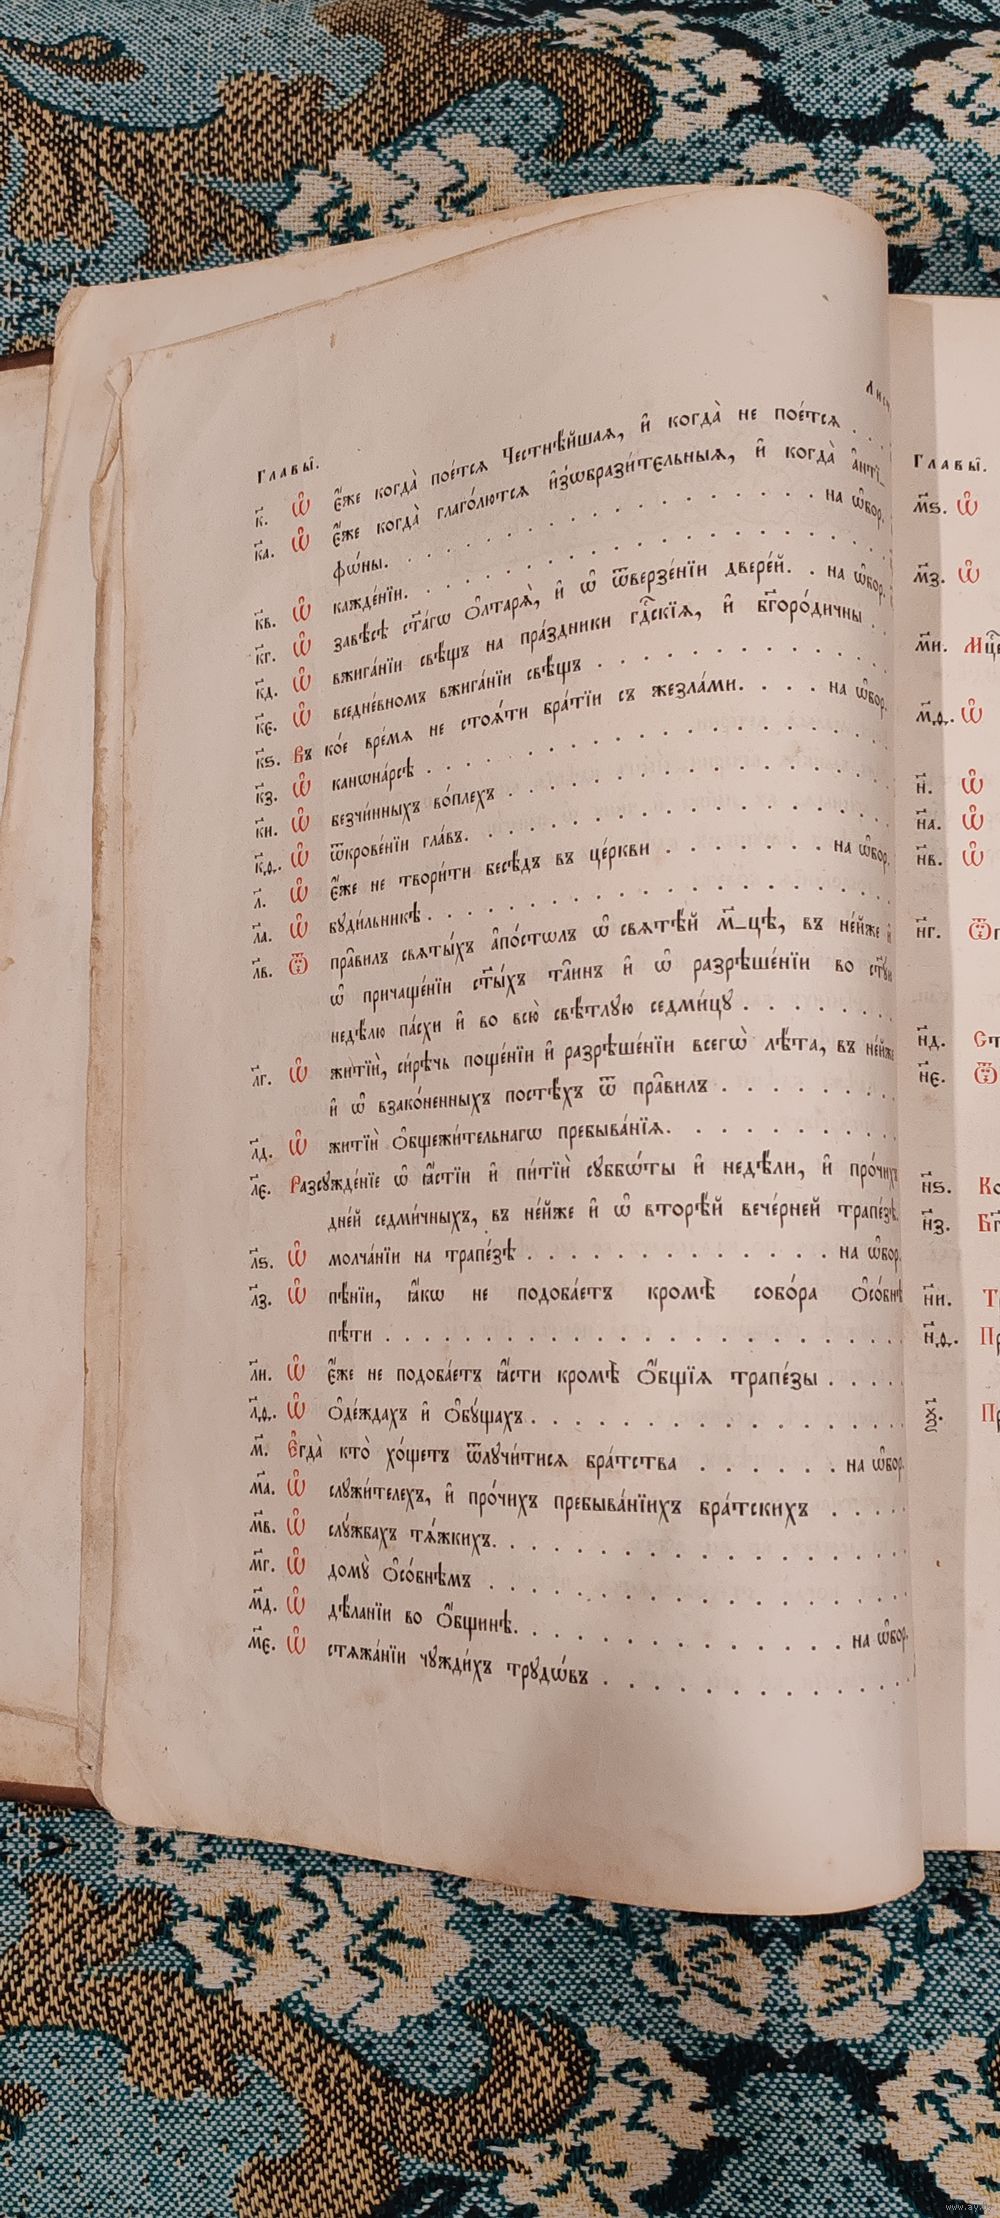 Лист
Главы̑.
к҃. Ѽ є҆́же когда̀ пое́тсѧ Честнѣ́йшаѧ, и҆ когда̀ не пое́тсѧ . . .
к҃а. Ѽ є҆́же когда̀ глаго́лютсѧ и҆зѡбрази́тєльныѧ, и҆ когда̀ а҆нті_
фѡ́ны. . . . . . . . . . . . . . на ѡ҆бор.
к҃в. Ѽ кажде́нїи. . . . . . . . . . . . .
к҃г. Ѽ завѣ́сѣ ст҃а́гѡ ѻ҆лтарѧ̀, и҆ ѡ҆ ѿверзе́нїи двере́й. . на ѡ҆бор.
к҃д. Ѽ вжига́нїи свѣ́щъ на пра́здники гдⷭ҇скїѧ, и҆ бг҃оро́дичны . .
к҃є. Ѽ вседне́вномъ вжига́нїи свѣ́щъ . . . . . . . . .
к҃ѕ. Въ ко́е вре́мѧ не стоѧ́ти бра́тїи съ жезла́ми. . . . на ѡ҆бор.
к҃з. Ѽ канѡна́рсѣ . . . . . . . . . . . . .
к҃и. Ѽ безчи́нныхъ во́плехъ . . . . . . . . . . .
к҃ѳ. Ѽ ѿкрове́нїи гла́въ. . . . . . . . . . . .
л҃. Ѽ є҆́же не твори́ти бесѣ́дъ въ це́ркви . . . . . . на ѡ҆бор.
л҃а. Ѽ буди́льникѣ . . . . . . . . . . . . .
л҃в. Ѿ пра̑вилъ свѧты́хъ а҆по́столъ ѡ҆ свѧтѣ́й м҃_цѣ, въ не́йже и҆
ѡ҆ причаще́нїи ст҃ы́хъ та̑инъ и҆ ѡ҆ разрѣше́нїи во ст҃у́ю
недѣ́лю па́схи и҆ во всю̀ свѣ́тлую седми́цу . . . . . . .
л҃г. Ѽ житїѝ, си́рѣчь поще́нїи и҆ разрѣше́нїи всегѡ̀ лѣ́та, въ не́йже
и҆ ѡ҆ взако́ненныхъ постѣ́хъ ѿ пра̑вилъ . . . . . . .
л҃д. Ѽ житїѝ ѻ҆бщежи́тельнагѡ пребыва́нїѧ. . . . . . . .
л҃є. Разсужде́нїе ѡ҆ ꙗ҆́стїи и҆ пи́тїѝ суббѡ́ты и҆ недѣ́ли, и҆ про́чихъ
дне́й седми́чныхъ, въ не́йже и҆ ѡ҆ вторѣ́й вече́рней трапе́зѣ.
л҃ѕ. Ѽ молча́нїи на трапе́зѣ . . . . . . . . . . на ѡ҆бор.
л҃з. Ѽ пѣ́нїи, ꙗ҆́кѡ не подоба́етъ кромѣ̀ собо́ра ѻ҆со́бнѣ
пѣ́ти . . . . . . . . . . . . . . .
л҃и. Ѽ є҆́же не подоба́етъ ꙗ҆́сти кромѣ̀ ѻ҆́бщїѧ трапе́зы . . . .
л҃ѳ. Ѽ ѻ҆де́ждахъ и҆ ѻ҆бу́щахъ. . . . . . . . . . .
м҃. Е҆гда̀ кто̀ хо́щетъ ѿлучи́тисѧ бра́тства . . . . . . на ѡ҆бор.
м҃а. Ѽ служи́телехъ, и҆ про́чихъ пребыва́нїихъ бра́тскихъ . . . .
м҃в. Ѽ слу́жбахъ тѧ́жкихъ. . . . . . . . . . . .
м҃г. Ѽ дому̀ ѻ҆со́бнѣмъ . . . . . . . . . . . .
м҃д. Ѽ дѣ́ланїи во ѻ҆́бщинѣ. . . . . . . . . . на ѡ҆бор.
м҃є. Ѽ стѧжа́нїи чужди́хъ трудѡ́въ . . . . . . . . .
Главы̑.
м҃ѕ. Ѽ
м҃з. Ѽ
м҃и.
м҃ѳ. Ѽ
н҃. Ѽ
н҃а. Ѽ
н҃в. Ѽ
н҃г.
н҃д.
н҃є.
н҃ѕ.
н҃з.
н҃и.
н҃ѳ.
ѯ҃.